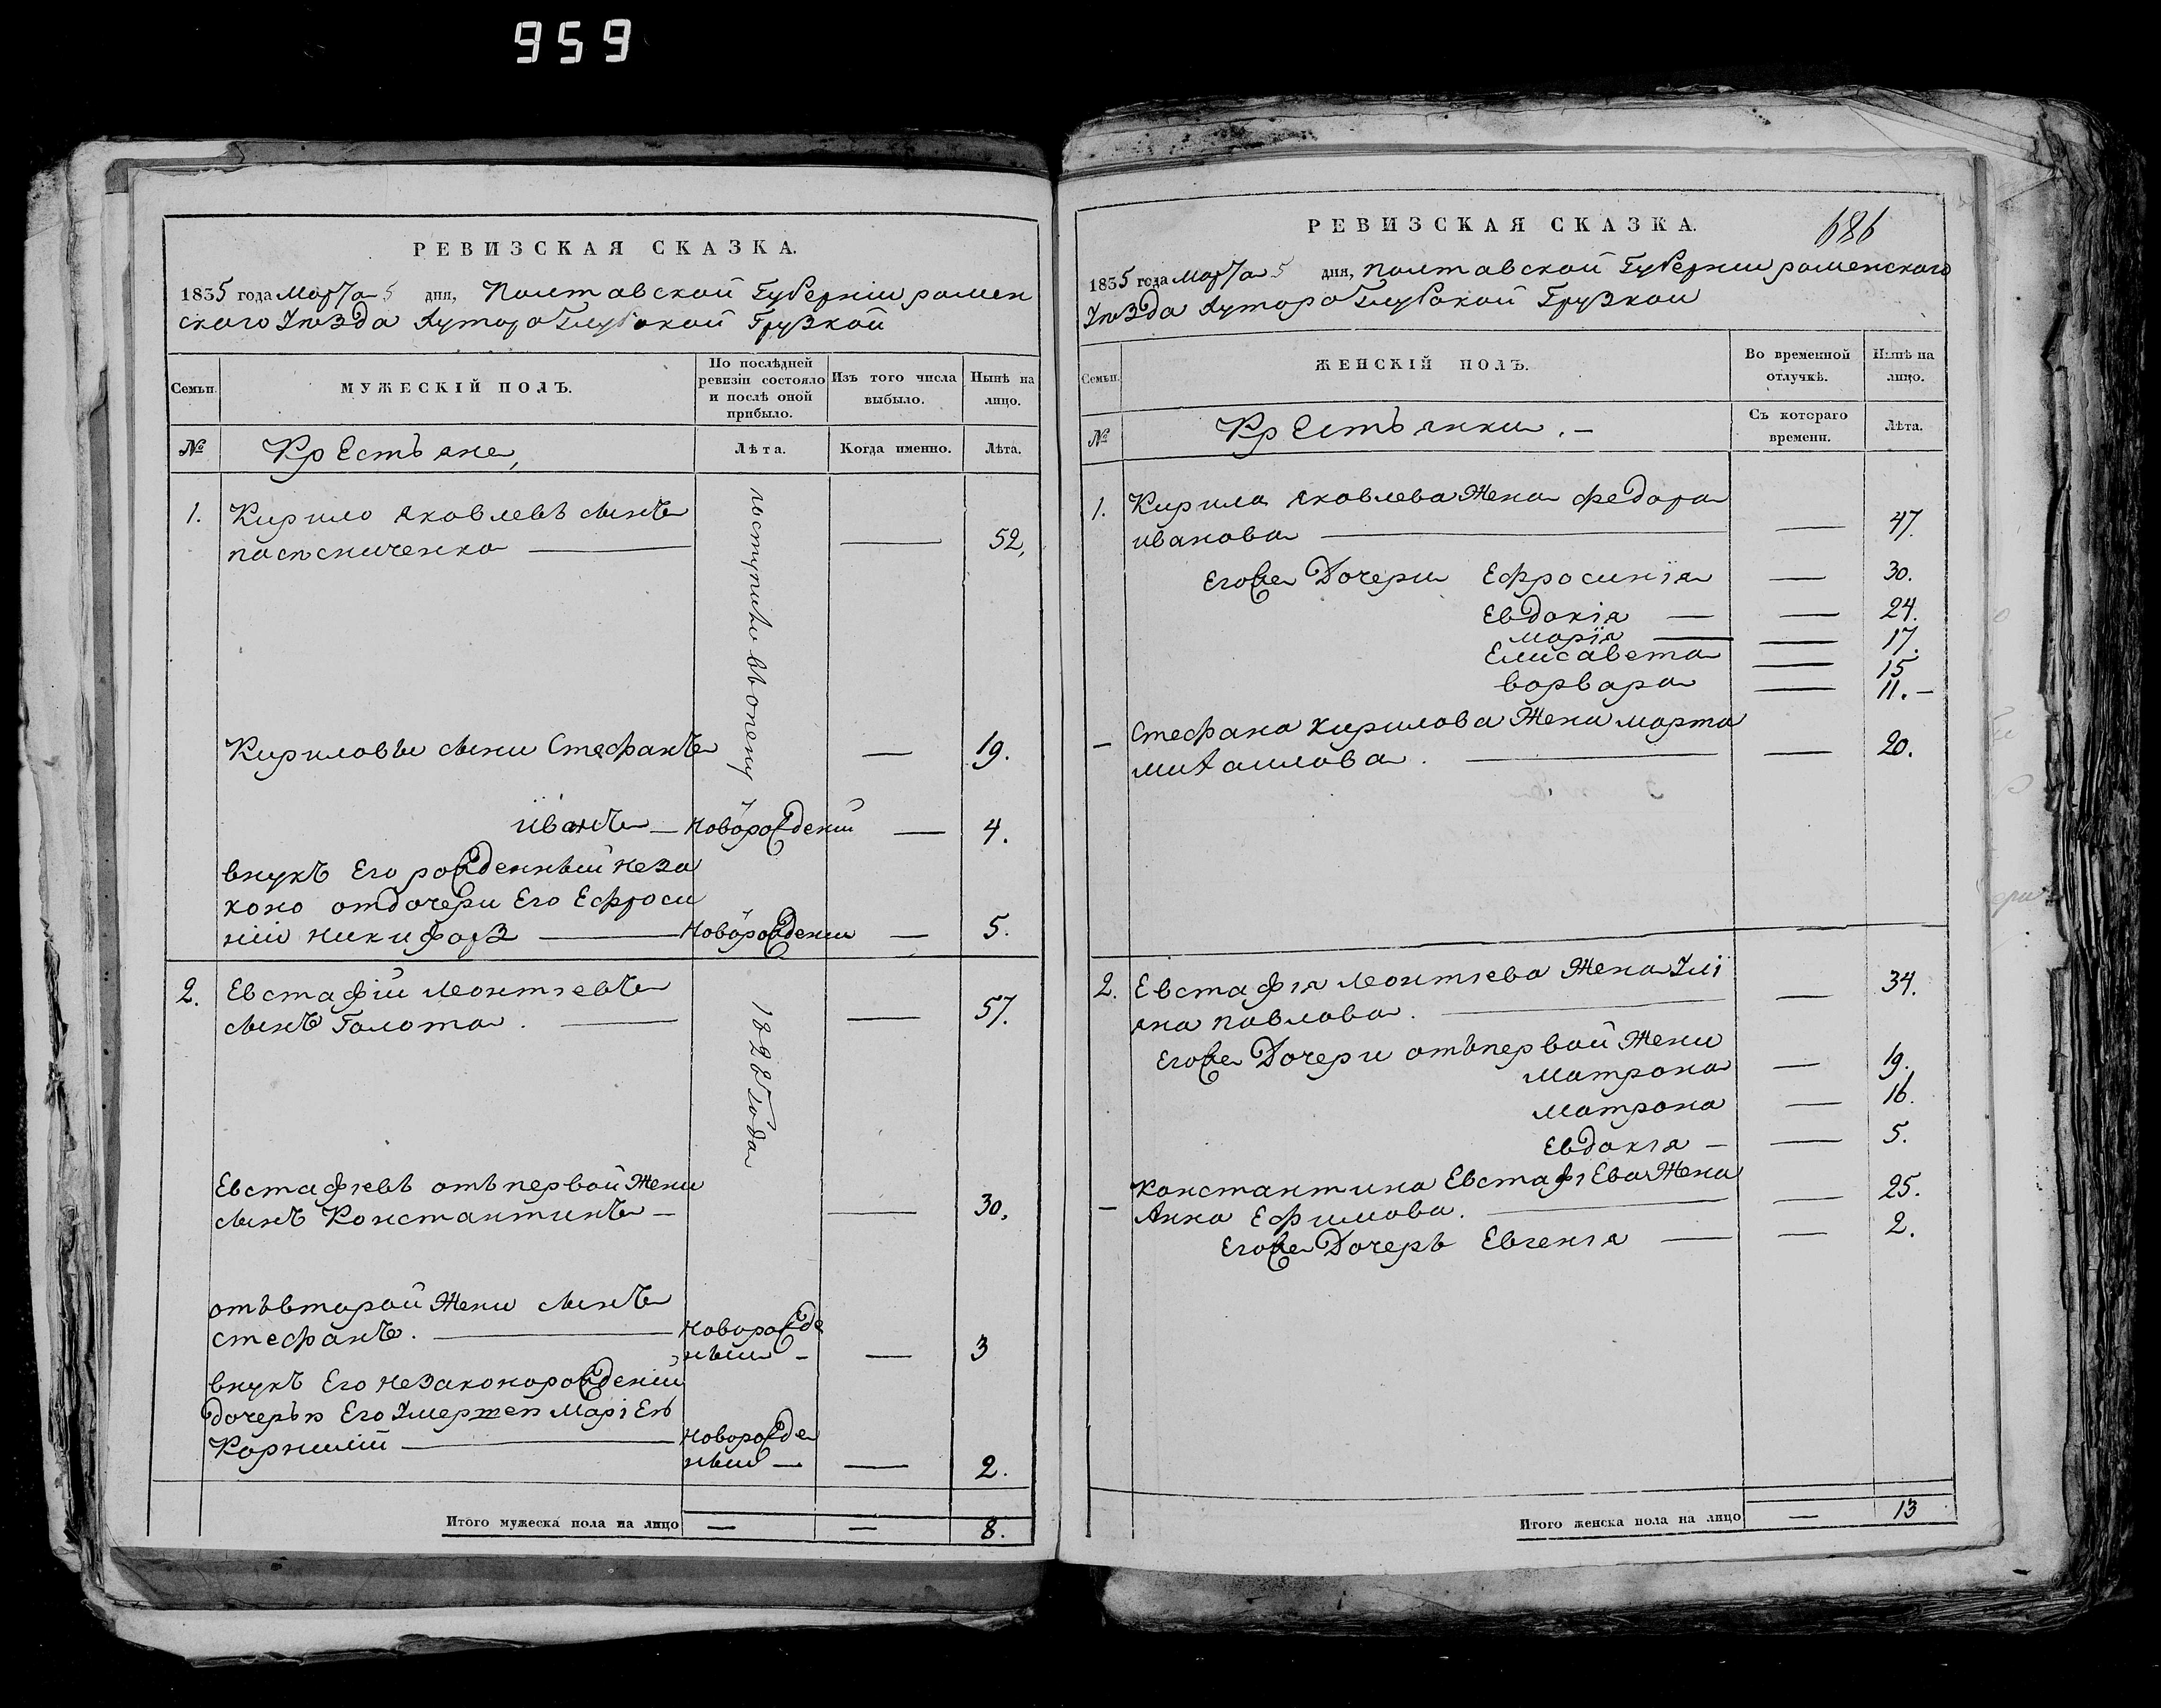 959
РЕВИЗСКАЯ СКАЗКА.
1835 года Марта 5 дня, Полтавской Губернiи ромен
ского Уѣзда Хутора Глубокой Грузкой
Семьи.
МУЖЕСКIЙ ПОЛЪ.
По послѣдней ревизiи состояло и послѣ оной прибыло.
Изъ того числа выбыло.
Нынѣ на лицо.
№
Крестьяне,
Лѣта.
Когда именно.
Лѣта.
1. Кирило Яковлевъ сынъ
пасѣсниченко — — 52,
поступило въ опеку
Кириловы сыни Стефанъ — 19.
иванъ — новорожденiй — 4.
внукъ Его рожденный неза
коно отдочери Его Ефроси
нiи никифоръ — новорождении — 5.
2. Евстафiй леонтiевъ
сынъ Голота. — — 57.
1828 Года
Евстафiевъ отъ первой Жени
сынъ Константинъ — — 30.
отъ второй Жени сынъ
стефанъ. — новорожде
ный — — 3
внукъ Его незаконорожденiй
дочерѣ Его Умершей Марiеѣ
Корнилiй — новорожде
ный — — 2.
Итого мужеска пола на лицо — — 8.
РЕВИЗСКАЯ СКАЗКА.
686
1835 года Марта 5 дня, полтавской Губернiи роменского
Уѣзда Хутора Глубокой Грузкой
Семьи.
ЖЕНСКIЙ ПОЛЪ.
Во временной отлучкѣ.
Нынѣ на лицо.
№
Крестьянки. —
Съ котораго времени.
Лѣта.
1. Кирила Яковлева Жена федора
иванова — — 47.
Егоже Дочери Ефросинiя — 30.
Евдокiя — — 24.
марiя — — 17.
Елисавета — 15
варвара — 11. —
— Стефана Кирилова Жена марта
михаилова. — — 20.
2. Евстафiя леонтiева Жена Улi
яна павлова. — — 34.
Егоже Дочери отъ первой Жени
матрона — 19.
матрона — 16.
Евдокiя — — 5.
константина Евстафiева Жена
— Анна Ефимова. — — 25.
Егоже Дочерь Евгенiя — — 2.
Итого женска пола на лицо — 13